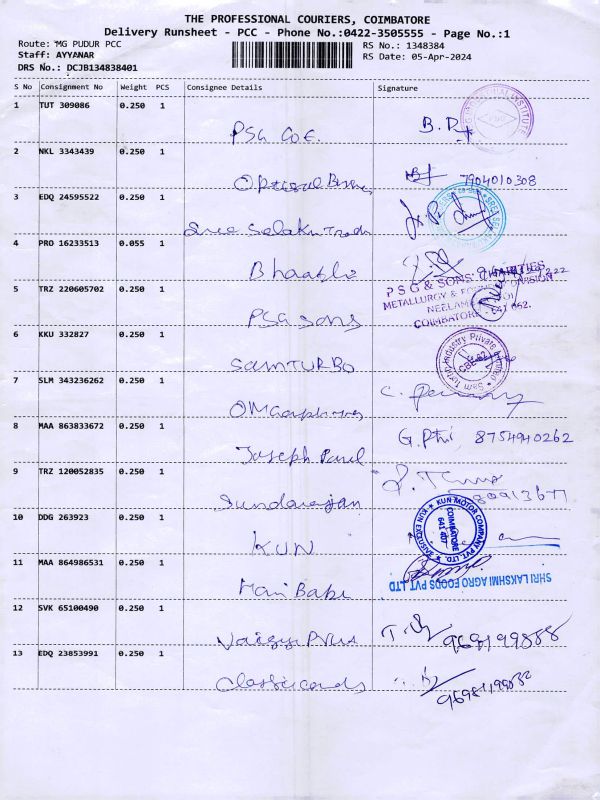 THE PROFESSIONAL COURIERS, COIMBATORE
Delivery Runsheet - PCC - Phone No.:0422-3505555 - Page No.:1
Route: MG PUDUR PCC
RS No.: 1348384
Staff: AYYANAR
RS Date: 05-Apr-2024
DRS No.: DCJB134838401
S No Consignment No Weight PCS Consignee Details Signature
1 TUT 309086 0.250 1
PSG COE.
2 NKL 3343439 0.250 1
7904010308
3 EDQ 24595522 0.250 1
4 PRO 16233513 0.055 1
PSG & SONS' CHARITIES
METALLURGY & FOUNDRY DIVISION
COIMBATORE - 641 062.
5 TRZ 220605702 0.250 1
PSG Sons
6 KKU 332827 0.250 1
SAMTURBO
Sam Turbo Industry Private Limited
7 SLM 343236262 0.250 1
8 MAA 863833672 0.250 1
Joseph Paul
8754940262
9 TRZ 120052835 0.250 1
Sundarajan
10 DDG 263923 0.250 1
KUN
KUN MOTOR COMPANY PVT. LTD.
COIMBATORE
11 MAA 864986531 0.250 1
Hari Babu
SHRI LAKSHMI AGRO FOODS PVT LTD
12 SVK 65100490 0.250 1
9698199888
13 EDQ 23853991 0.250 1
Classic cards